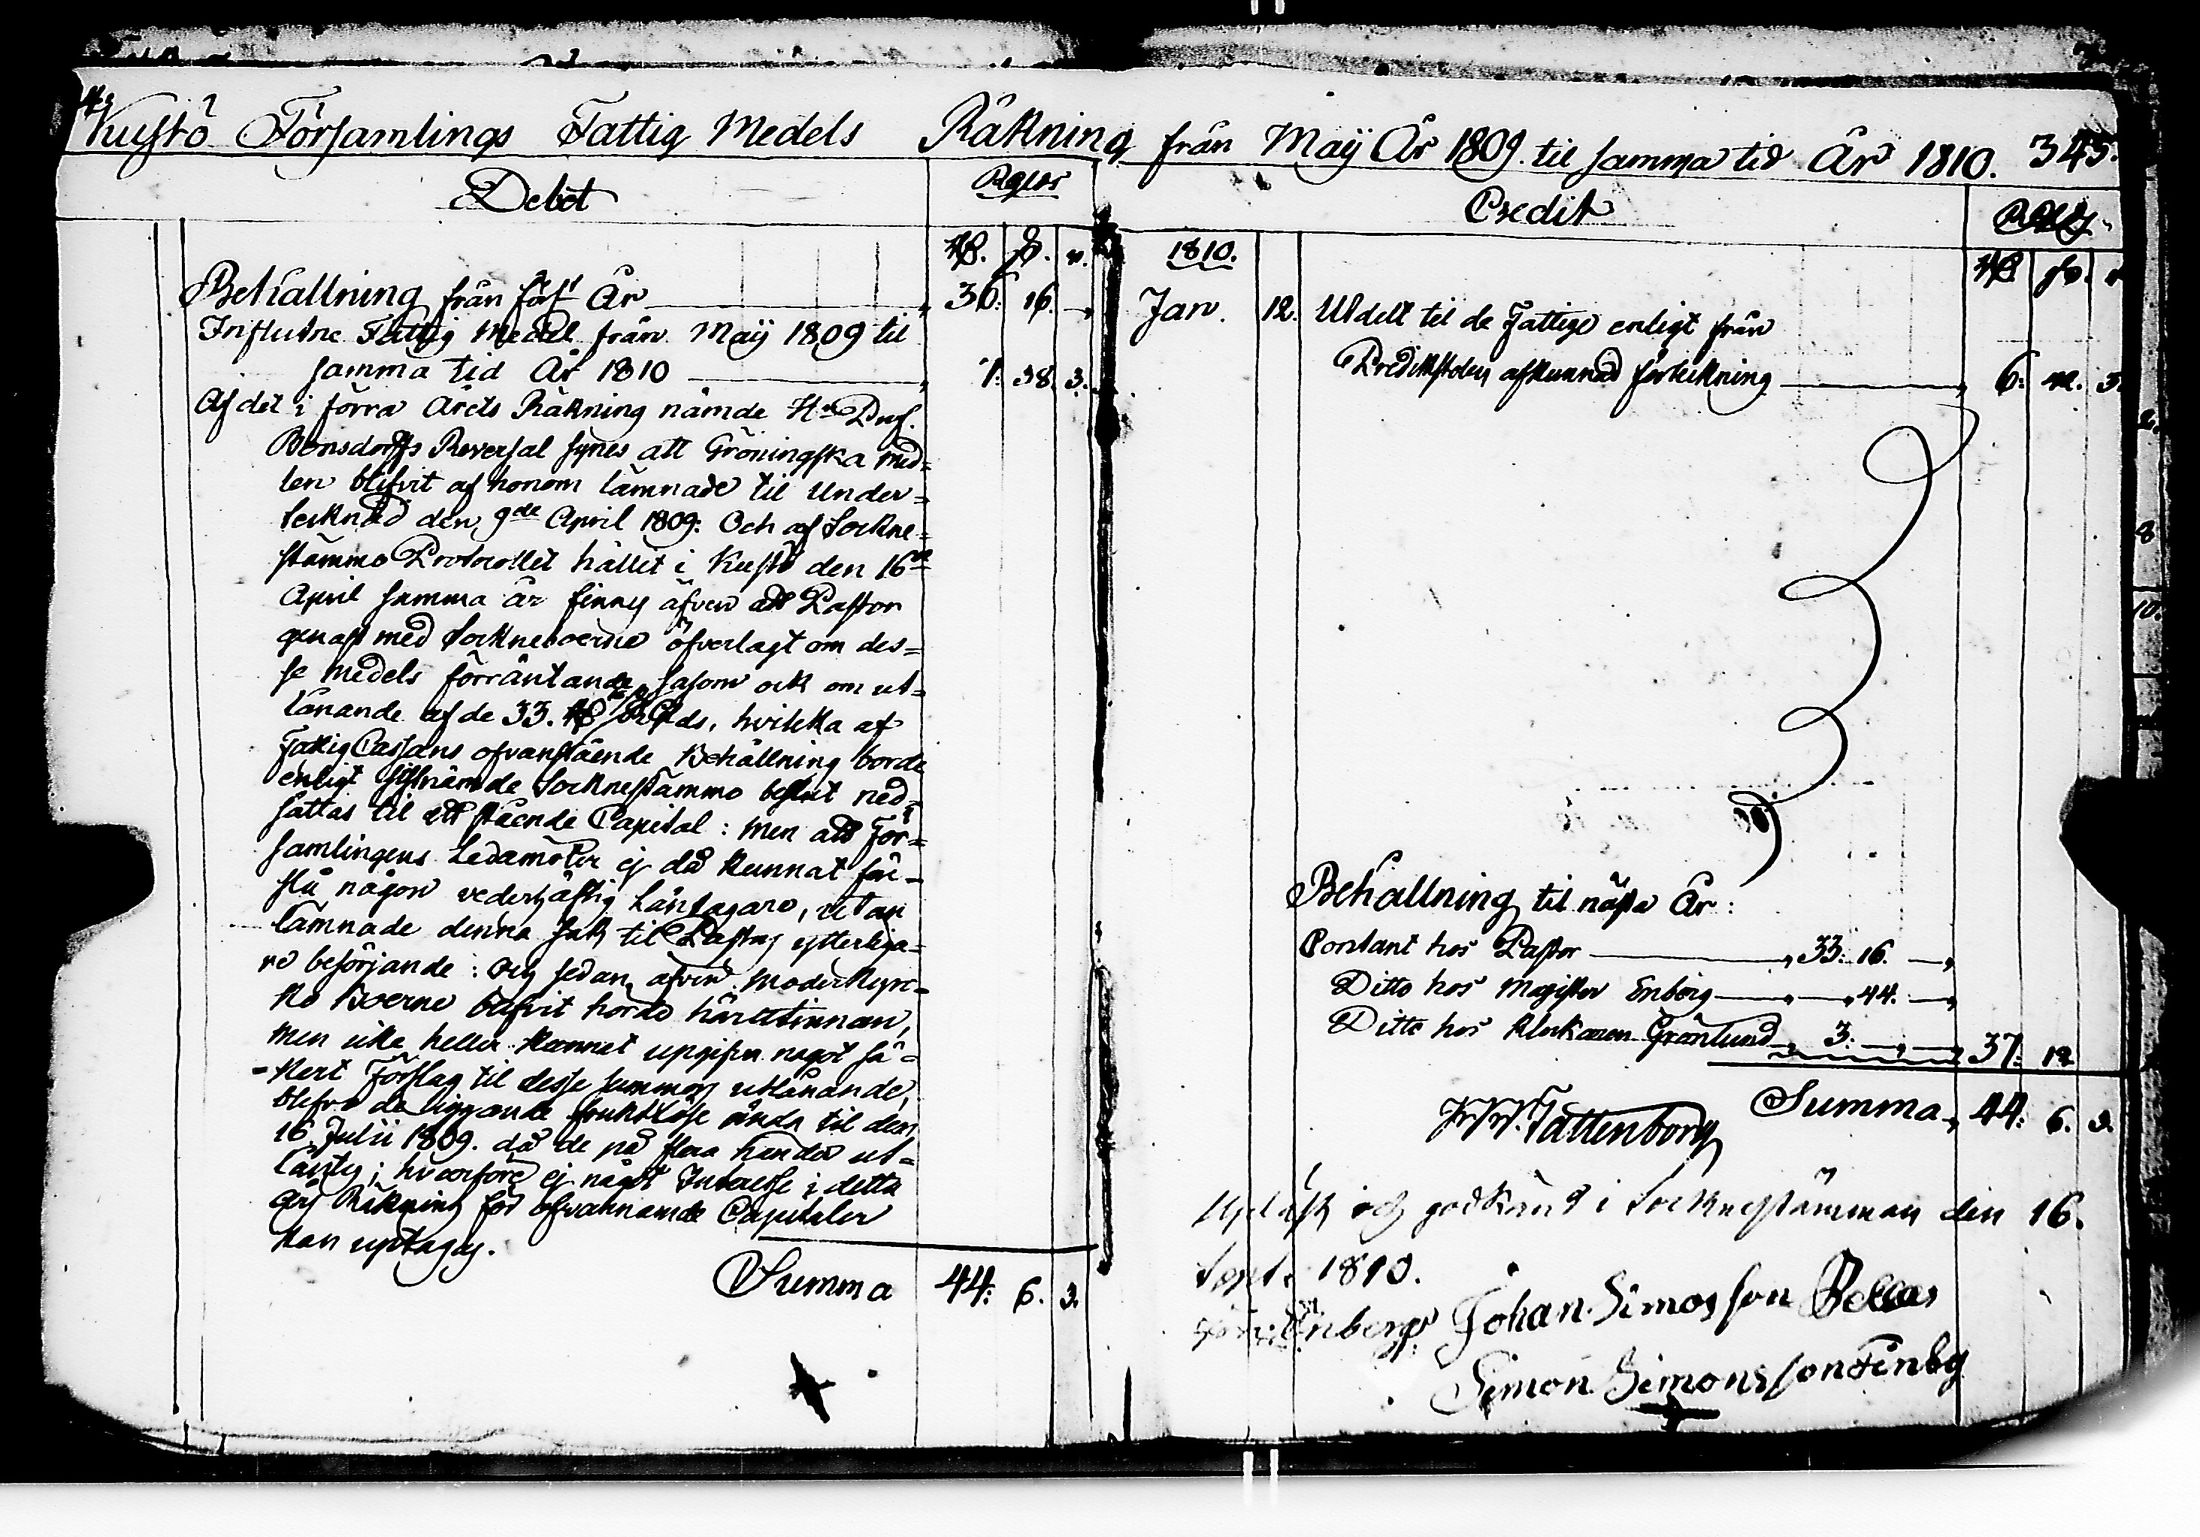 Kustö Församlings Fattig Medels Räkning från Maij År 1809 til samma tid År 1810. 345.
Debet
Rgds
Rd. s. r.
Behållning från förs. År 36: 16.
Influtne Fattig Medel från Maij 1809 til
samma tid År 1810 7: 38. 3.
Af det i förra Årets Räkning nämde Hr
Bonsdorffs Reversal synes att Gröningska med=
len blifvit af honom lämnade til Under=
tecknad den 9de April 1809: Och af Sockne=
stämmo Protocollet hållit i Kustö den 16de
April samma år finnes äfven att Pastor
genast med Sockneboerne öfverlagt om des=
se medels förräntande, såsom ock om ut=
lånande af de 33. Rd hvilka af
FattigCassans ofvanstående Behållning borde
enligt sistnämde Socknestämmo beslut ned=
sättas til ett stående Capital: men att För=
samlingens Ledamöter ej då kunnat före=
slå någon vederhäftig Låntagare, utan
lämnade denna sak til Pastors ytterliga=
re besörjande: Och sedan äfven Moderkyrc=
ko Boerne blifvit hörde härutinnan,
men icke heller kunnat upgifva något sä=
kert Förslag til desse summors utlånande,
blefvo de liggande fruktlöse ända til den
16 Julii 1809. då de på flera händer ut=
lånts; hvarföre ej något Interesse i detta
års Räkning för ofvannämde Capitaler
kan uptagas.
Summa 44: 6. 3.
Credit
1810.
Jan. 12. Utdelt til de Fattige enligt från
Predikstolen afkunnad förtekning 6: 42. 3.
Behållning til nästa År:
Contant hos Pastor 33: 16.
Ditto hos Magister Enberg 44.
Ditto hos Klockaren Grönlund 3: 37: 12
Summa 44: 6. 3.
Fattenborg
Upläst och godkänd i Socknestämman den 16.
Sept. 1810.
Enberg. Johan Simosson Bellas
Simon Simonsson Finby